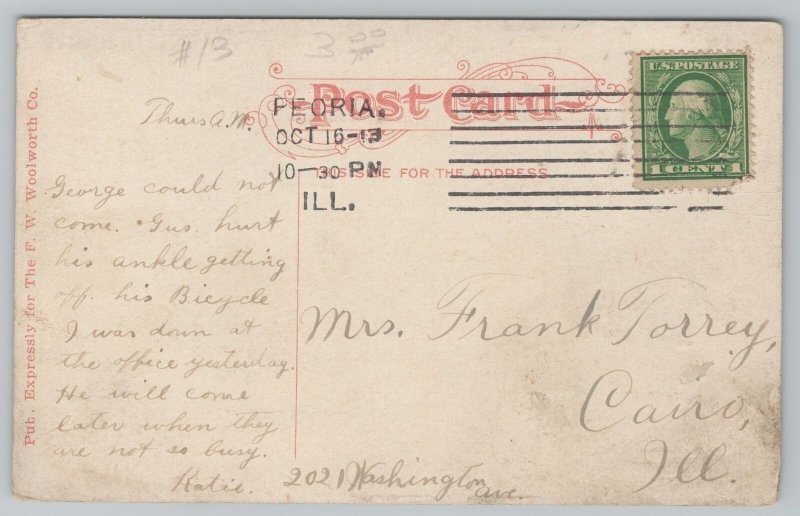 #13
3.00
Post Card
THIS SIDE FOR THE ADDRESS
PEORIA,
OCT 16-13
10-30 PM
ILL.
U.S. POSTAGE
1 CENT 1
Pub. Expressly for The F. W. Woolworth Co.
Thurs A.M.
George could not
come. Gus. hurt
his ankle getting
off his Bicycle
I was down at
the office yesterday.
He will come
later when they
are not so busy.
Katie.
Mrs. Frank Torrey,
Cairo,
Ill.
2021 Washington ave.